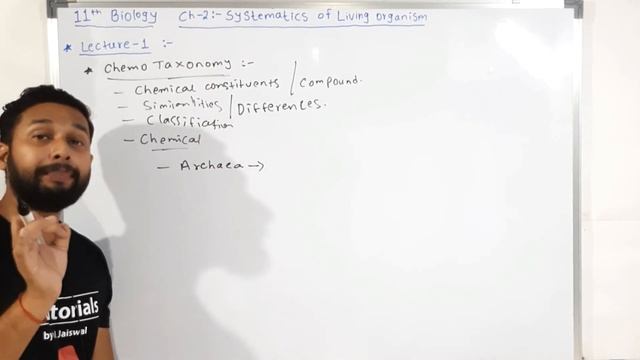 11th Biology Ch-2:- Systematics of Living organism
* Lecture-1 :-
* Chemo Taxonomy :-
- Chemical constituents / Compound.
- Similarities / Differences.
- Classification
- Chemical
- Archaea →
torials
by I.Jaiswal